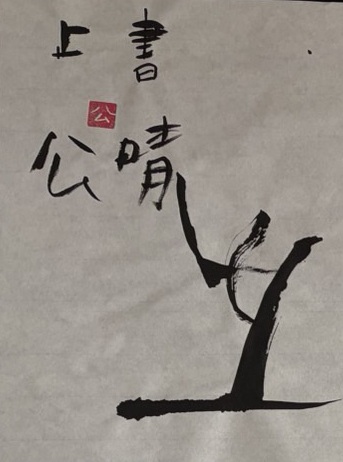 書上
公
晴公